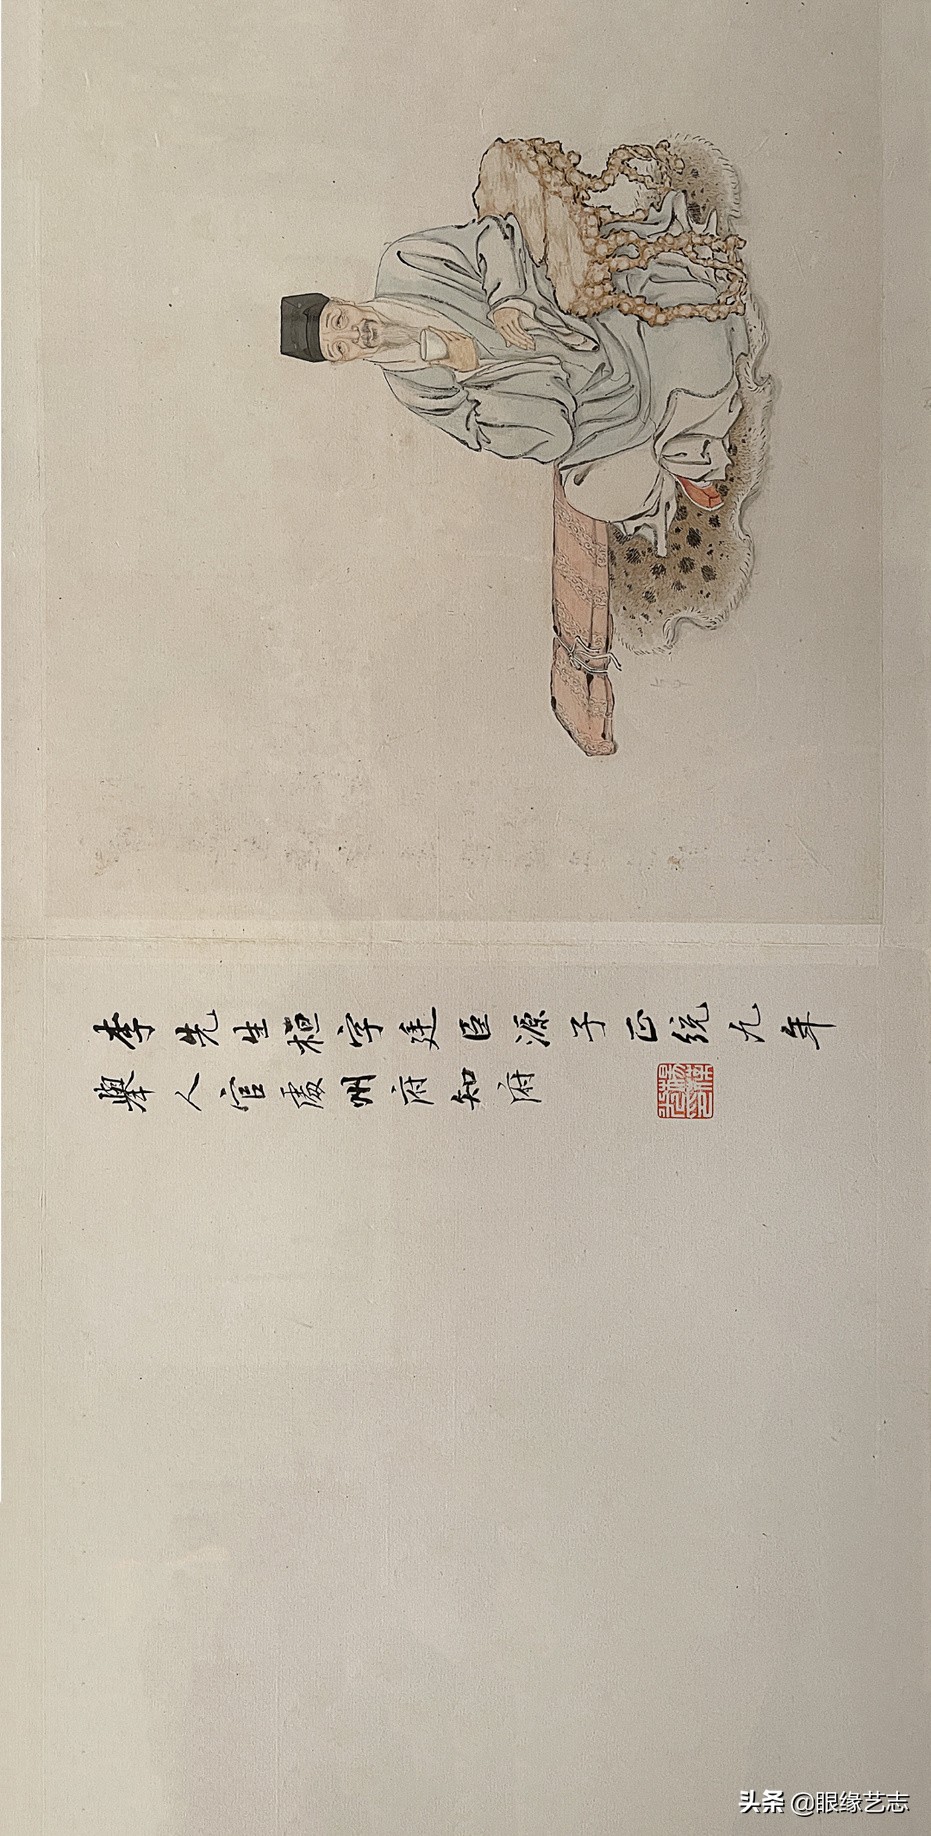 李先生桓字廷臣源子正统九年
舉人官處州府知府
头条 @眼缘艺志